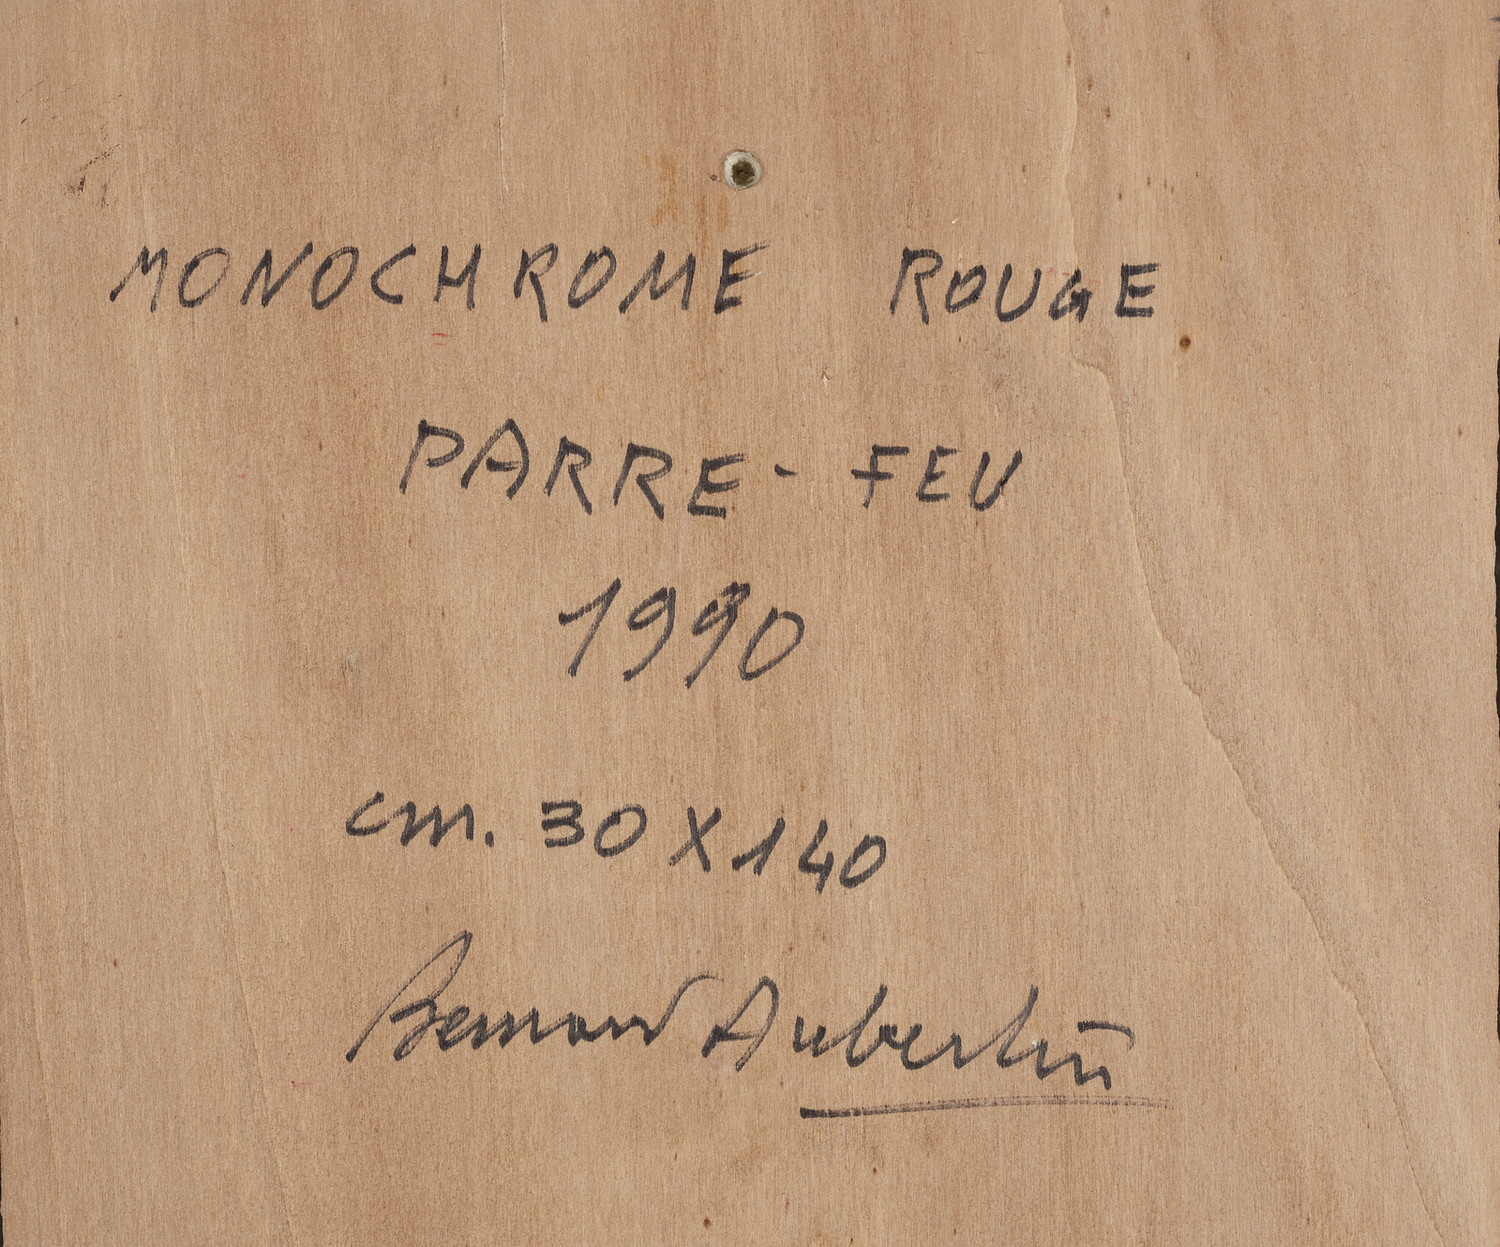 MONOCHROME ROUGE
PARRE-FEU
1990
cm. 30 X 140
Bernard Aubertin